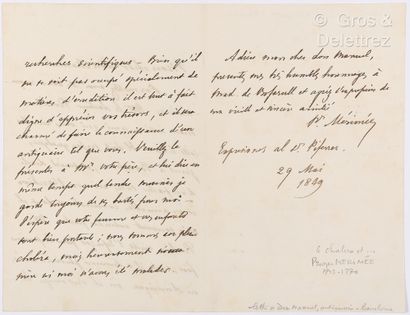 © Gros & Delettrez
recherches scientifiques. Bien qu'il
ne se soit pas occupé spécialement de
matières d'érudition il est tout à fait
digne d'apprécier vos trésors, et il sera
charmé de faire la connaissance d'un
antiquaire tel que vous. Veuillez le
présenter à Mr. votre père, et lui dire en
même temps quel tendre souvenir je
garde toujours de ses bontés pour moi.
J'espère que votre femme et vos enfants
sont bien portants; nous avons
choléra, mais heureusement
mère ni moi n'avons été malades.
Adieu mon cher don Manuel,
présentez mes très humbles hommages à
Mad. de Bofarull et agréez l'expression de
ma vieille et sincère amitié
Pr. Mérimée
Expresiones al Sr. Piferrer.
29 Mai
1849
Prosper MERIMEE
1803-1870
lettre à Don Manuel, antiquaire à Barcelone